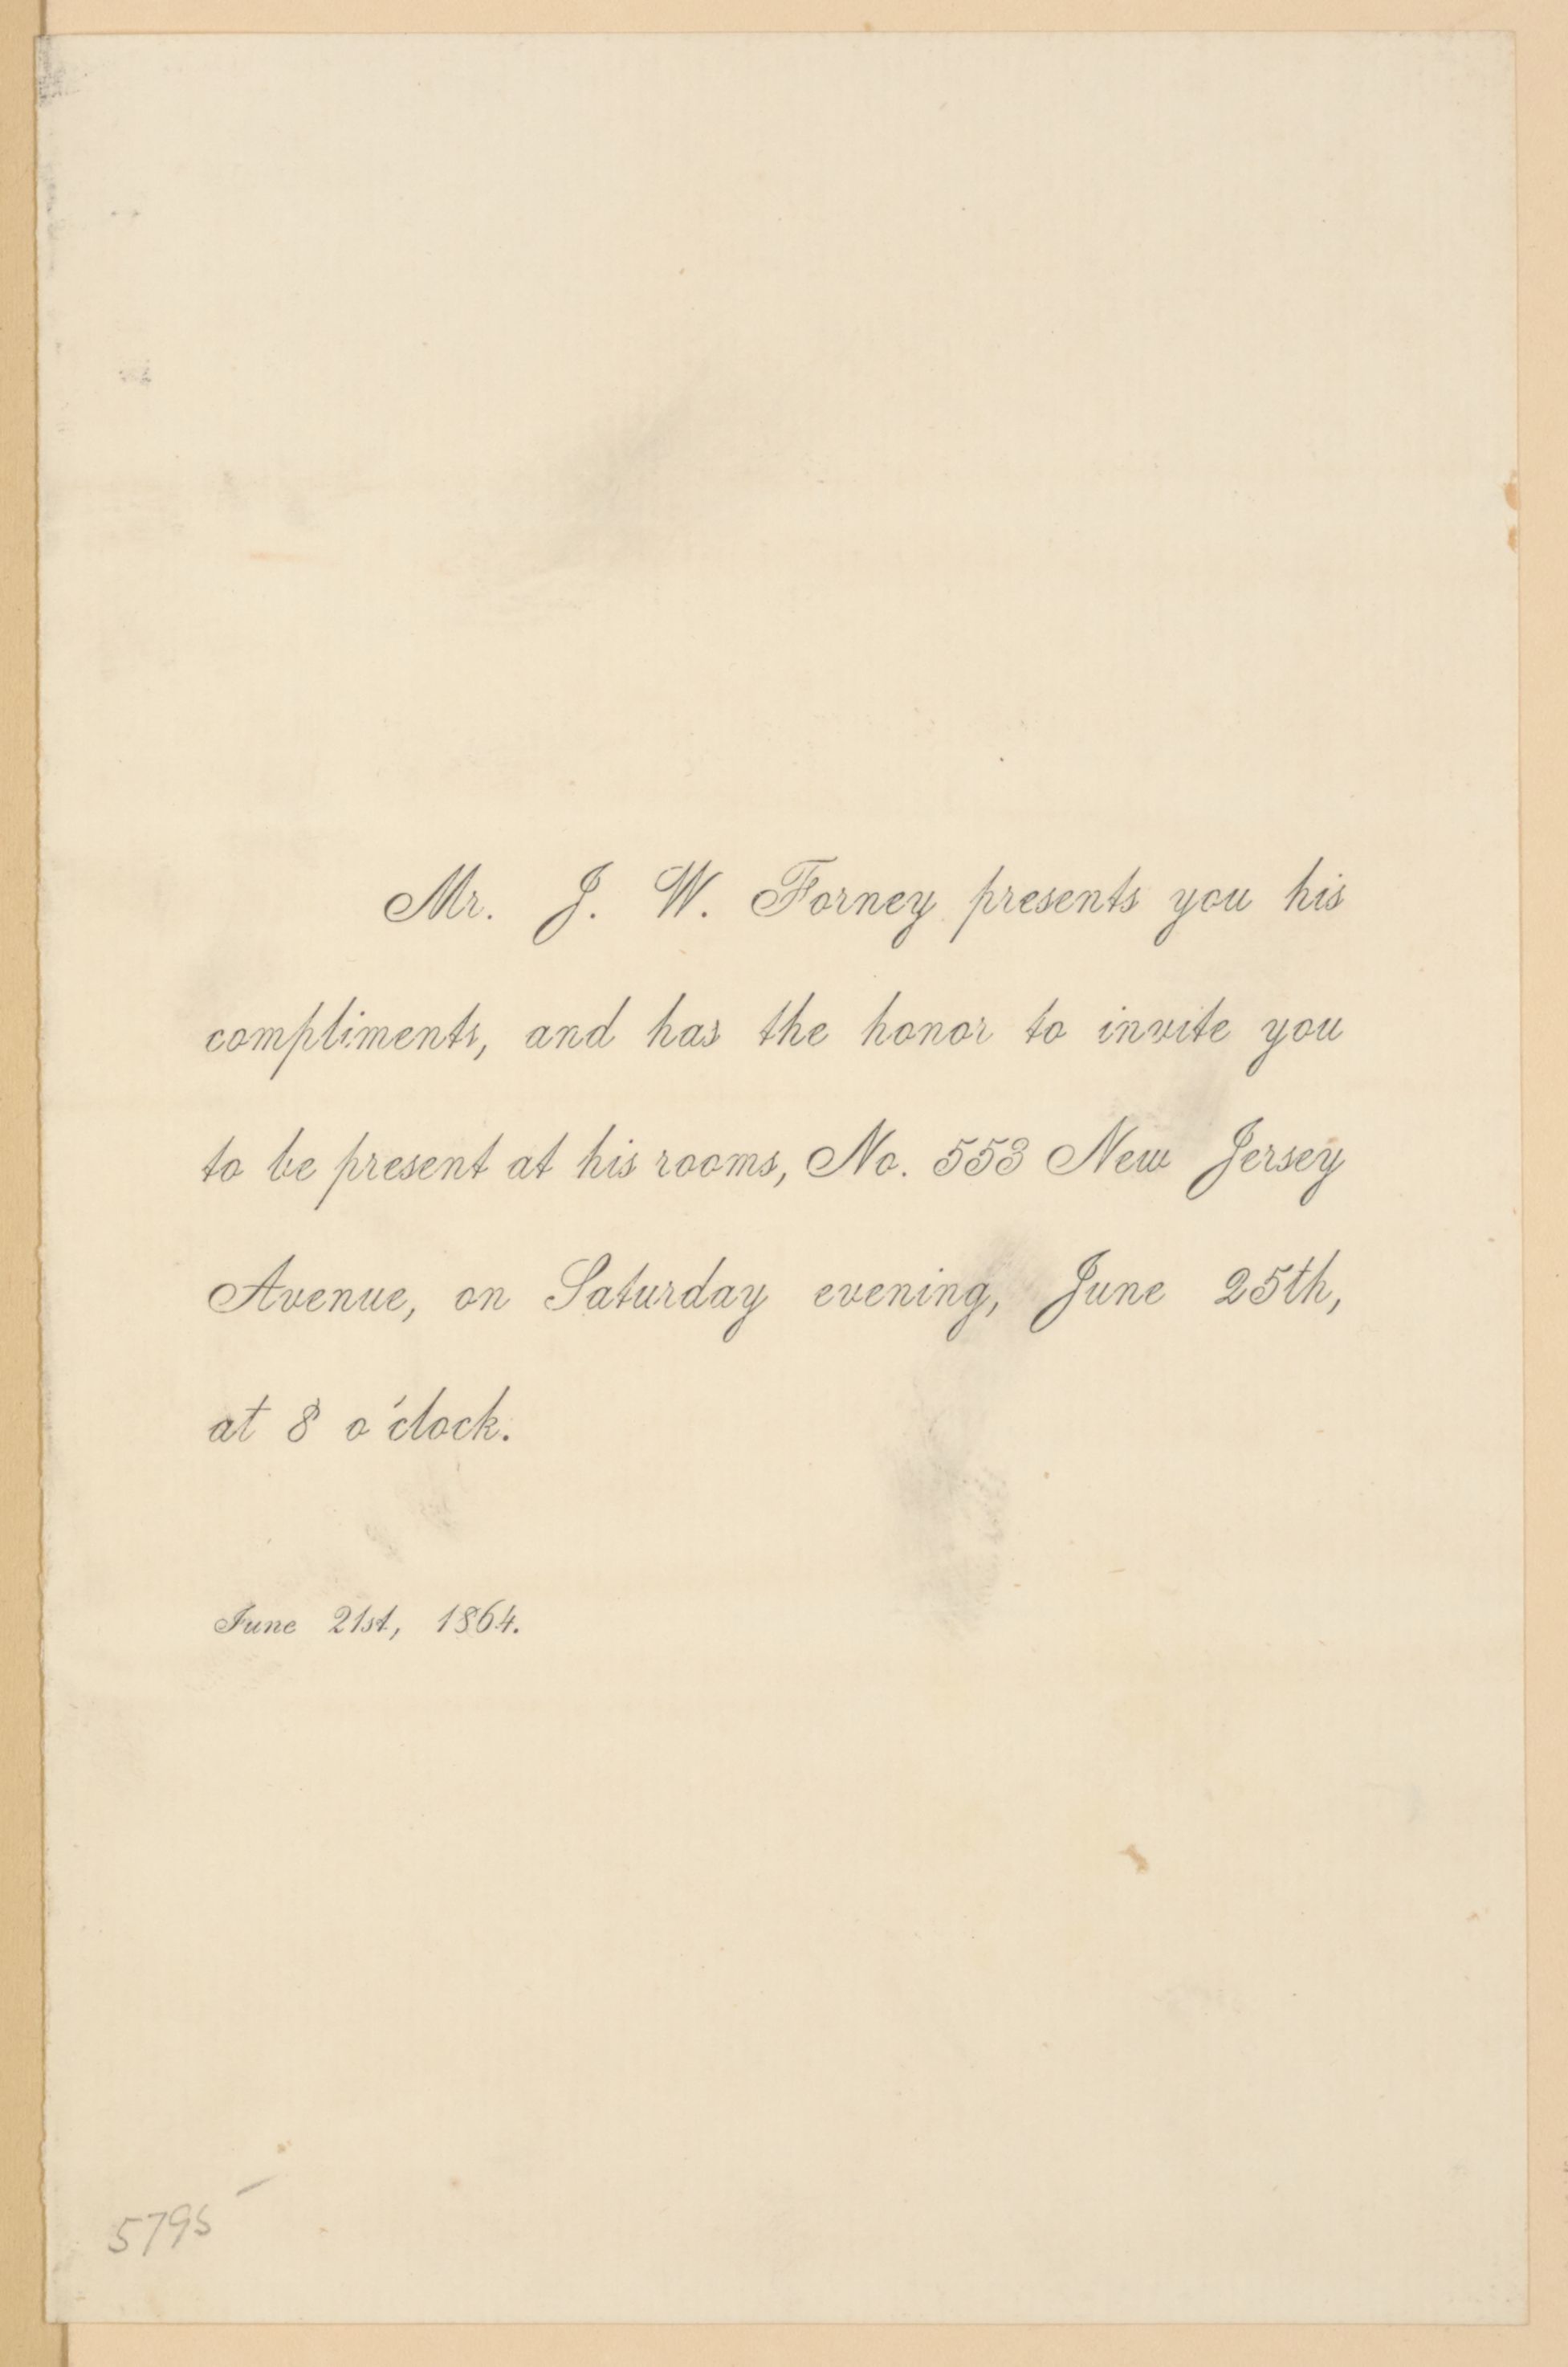 Mr. J. W. Forney presents you his
compliments, and has the honor to invite you
to be present at his rooms, No. 553 New Jersey
Avenue, on Saturday evening, June 25th,
at 8 o'clock.
June 21st, 1864.
5795